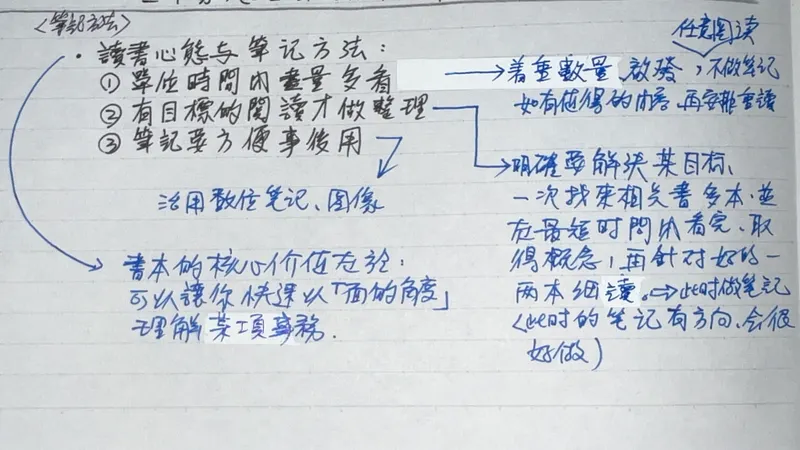 <筆記方法>
・讀書心態与筆記方法:
① 單位時間內盡量多看
② 有目標的閱讀才做整理
③ 筆記要方便事後用
活用數位笔记、圖像
書本的核心价值在於:
可以讓你快速以「面的角度」
理解某項事務.
任意閱讀
着重數量 啟發,不做笔记
如有值得的內容,再安排重讀
明確要解決某目標、
一次找來相关書多本.並
在最短时間內看完、取
得概念,再針对好的一
兩本細讀.→此时做笔记
(此时的笔记有方向、会很
好做)